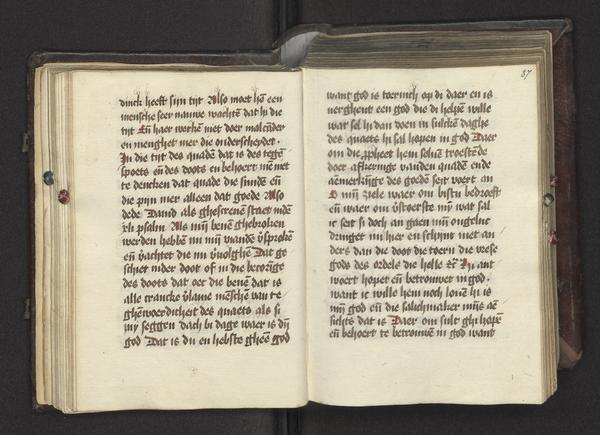 dinck heeft sijn tijt Also moet hē een
mensche seer nauwe wachtē dat hi die
tijt Eñ haer werken niet doer malcāder
en menghet mer die onderscheydet.
In die tijt des quadē dat is des tegē
spoets eñ des doots en behoert mē niet
te dencken dat quade die sunde eñ
die pijn mer alleen dat goede Also
dede Dauid als ghescreuē staet indē
psalm Als mijn benē ghebrokē
werden hebbē mi mijn viandē v̄sprokē
eñ v̄achtet die mi v̄uolghē Dat ge
schiet inder doot of in die becorīge
des doots dat oec die benē dat is
alle crancke menschē van te
ghēwoerdicheit des quaets als si
my seggen dach bi dage waer is dijn
god Dat is du en hebste gheē god
87
want god is toernich op di daer en is
nerghent een god die di helpē wille
wat sel hi dan doen in sulckē daghe
des quaets hi sal hopen in god Daer
om die ꝓpheet hem seluē troestede
doer afkeringe vanden quadē ende
aēmerkīge des goedē seit voert an
O mijn ziele waer om bistu bedroeft
eñ waer om v̄stoerste my wat sal
ic seit si doch an gaen mijn ongeluc
dringet mi hier en schijnt niet an
ders dan die doot die toern die vrese
gods des ordels die helle &c In ant
woert hoper eñ betrouwet in god.
want ic wille hem noch louē hi is
mijn god eñ die salichmaker mijns aē
sichts dat is Daer om sult ghi hopē
eñ behoert te betrouwē in god want